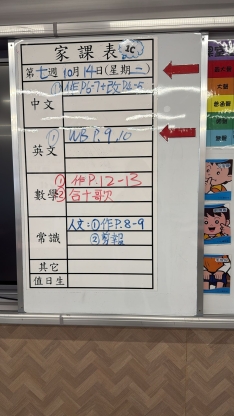 家課表 1C
第七週 10月14日(星期二)
中文 ①作P.6-7+改P.4-5
英文 ① WB P.9,10
數學 ① 作P.12-13
② 合十歌欠
常識 人文:①作P.8-9
②剪報
其它
值日生